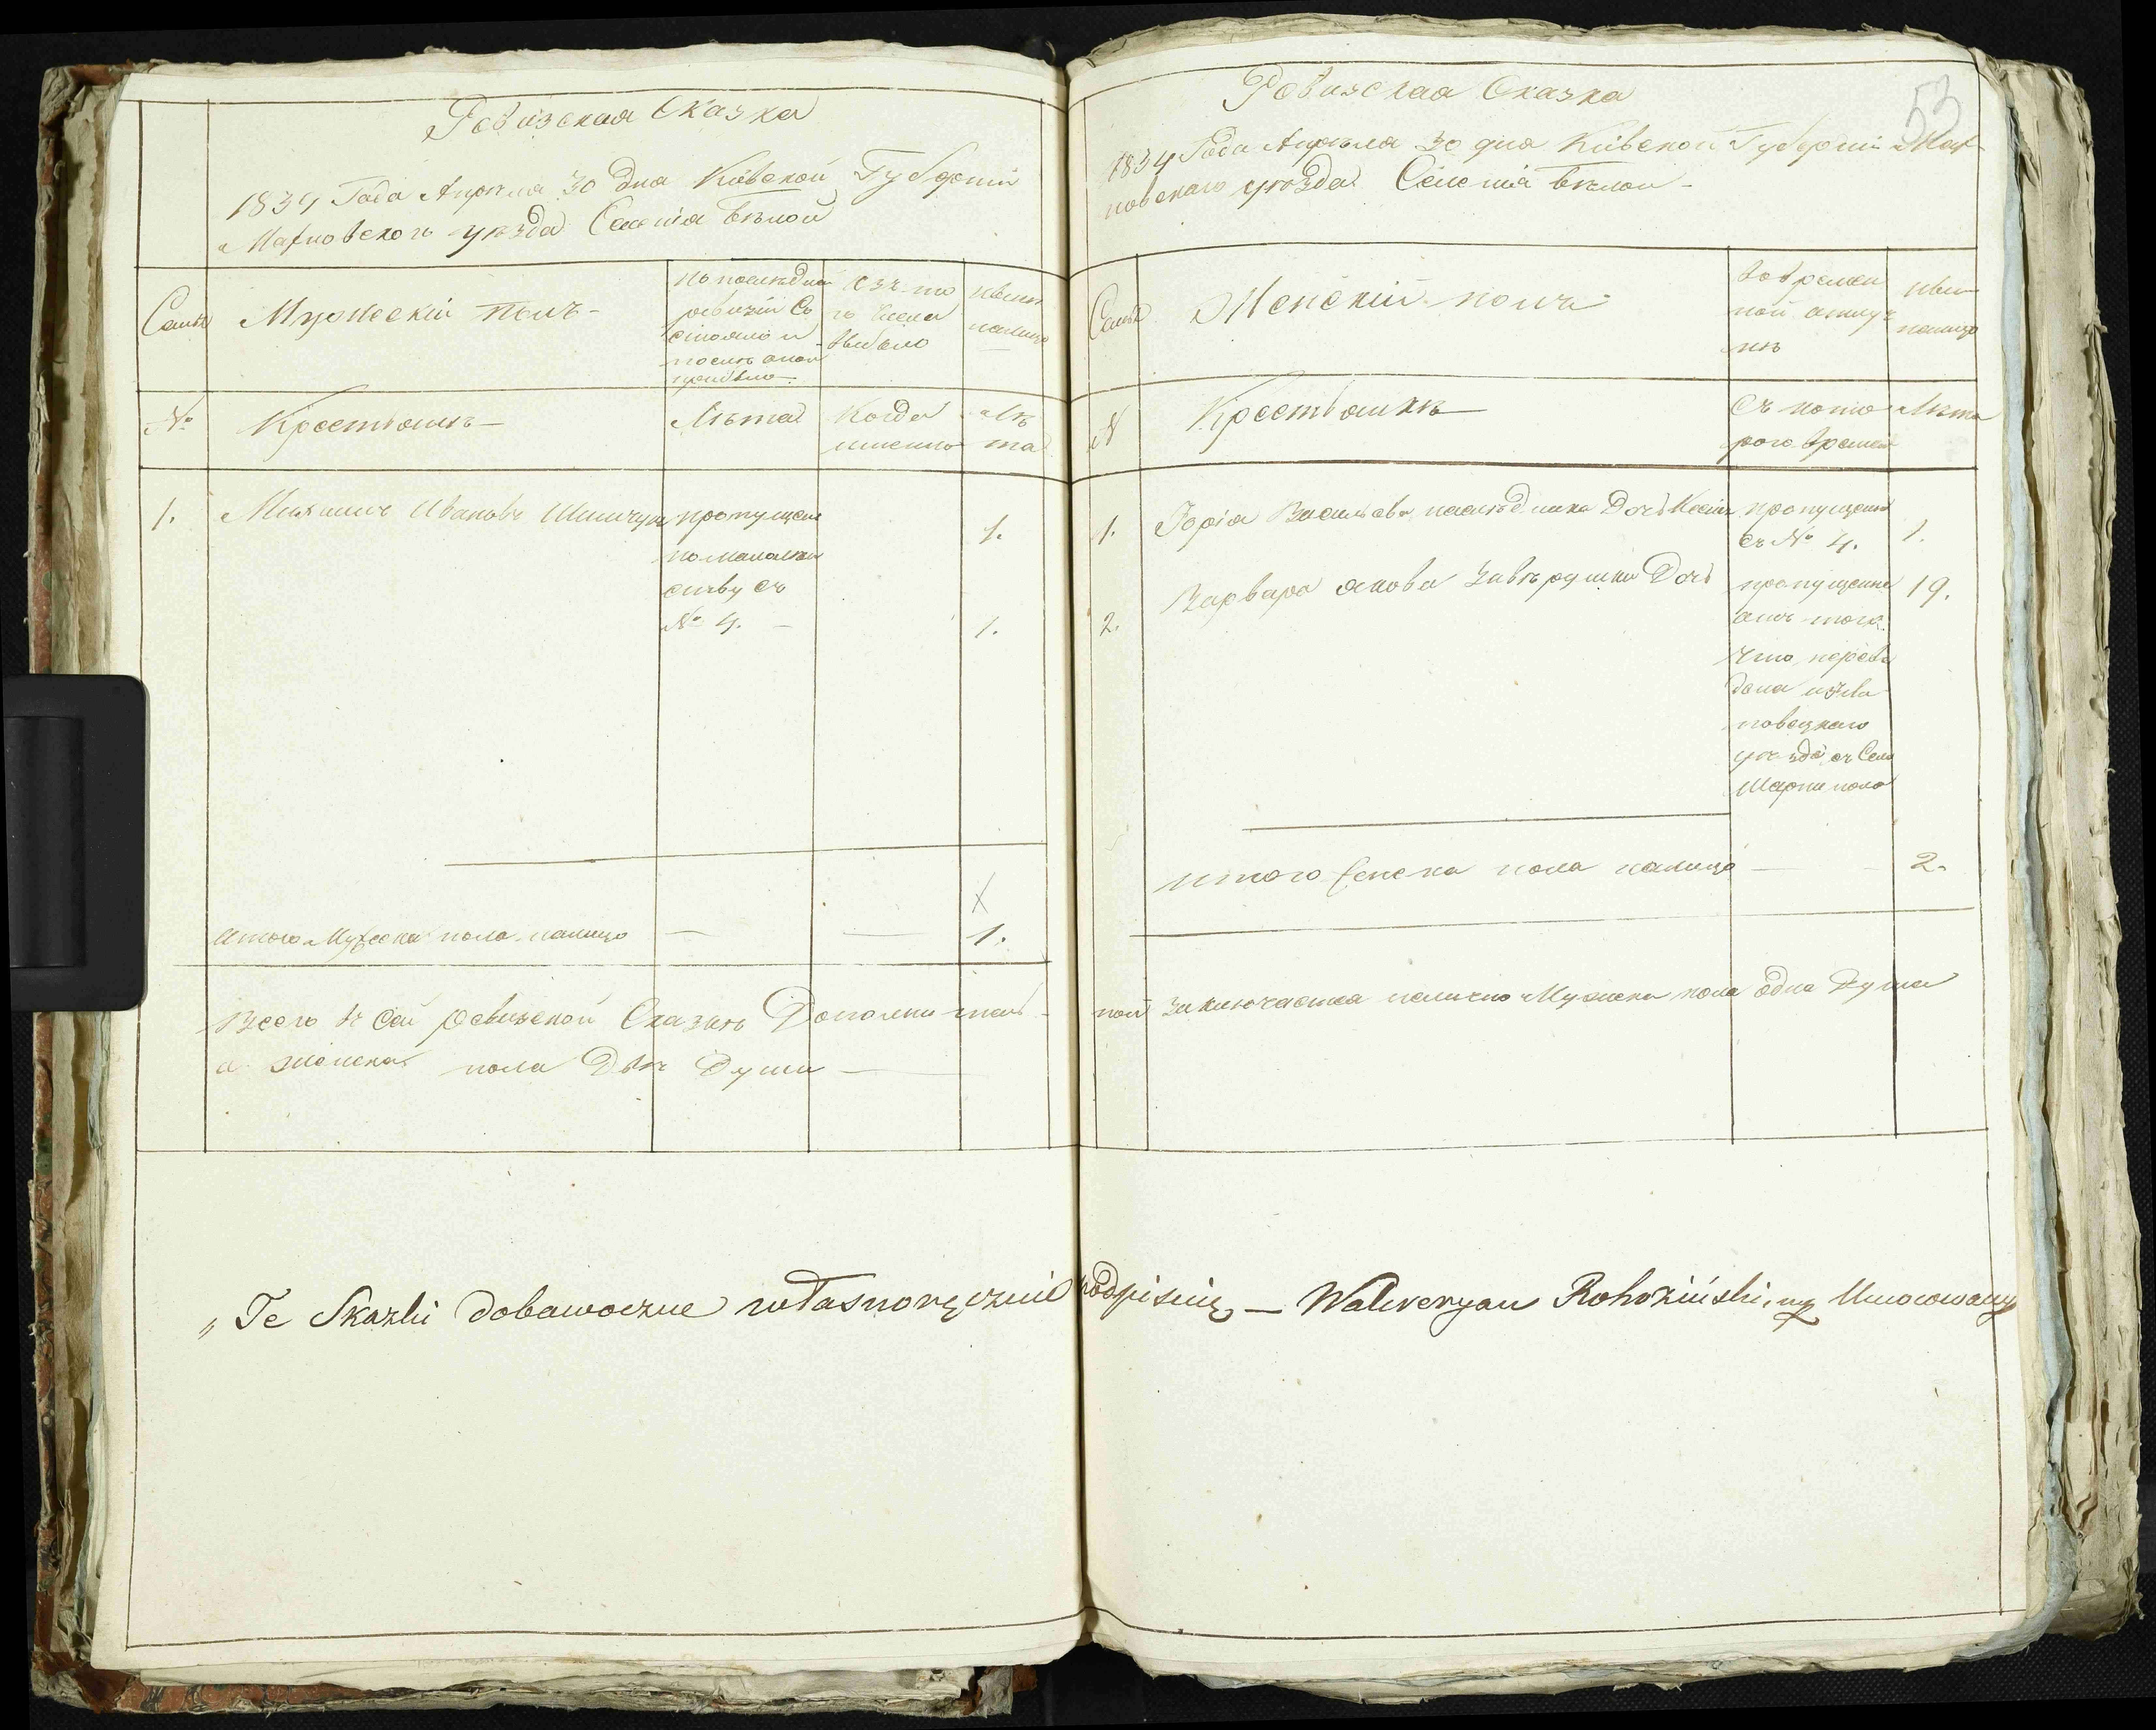 Ревизская Сказка
1834 Года Апреля 30 дня Кіевской Губерніи
Махновскогъ уѣзда Селенія Бѣлой
Семьи
Мужескій полъ
По последней
ревизіи Со
стояло и
после оной
прибыло
Изъ то
го числа
выбыло
Ныне
налицо
№
Крестьянъ
Лѣта
Когда
именно
Лѣ
та
1. Михаилъ Ивановъ пропущенъ 1.
по малолет
ству съ
№ 4. 1.
итого Мужеска пола налицо 1.
Всего въ Сей ревизской Сказкѣ Дополнитель
а женска пола Двѣ Души
53
Ревизская Сказка
1834 Года Апреля 30 дня Кіевской Губерніи Мах
новскаго уѣзда Селенія Бѣлой
Семьи
Женскій полъ
Во времен
ной отлуч
кѣ
Ныне
налицо
№
Крестьянкѣ
Съ кото
рого времени
Лѣта
1. Васильева Дочь пропущена 1.
съ № 4.
2. Варвара Якова Завѣрушки Дочь пропущенна 19.
что переве
дена изъ Ли
повецкаго
уѣзда съ Села
итого женска пола налицо 2.
ной заключается налично Мужеска пола одна Душа
„Te Skazki dobawoczne własnoręcznie podpisuię — Waleryan Rohoziński, mp Umocowany